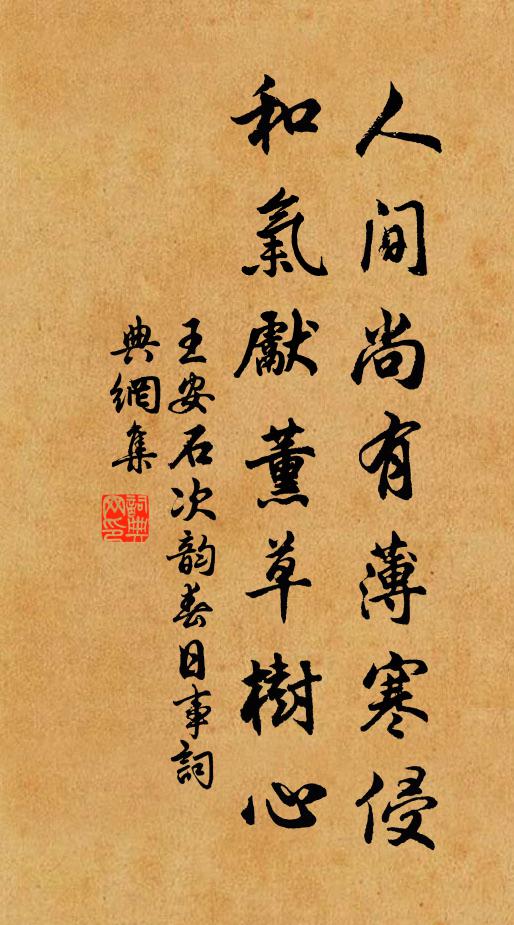 人间尚有薄寒侵
和氣獻薰草樹心
王安石次韵春日事詞
典網集
詞典網印